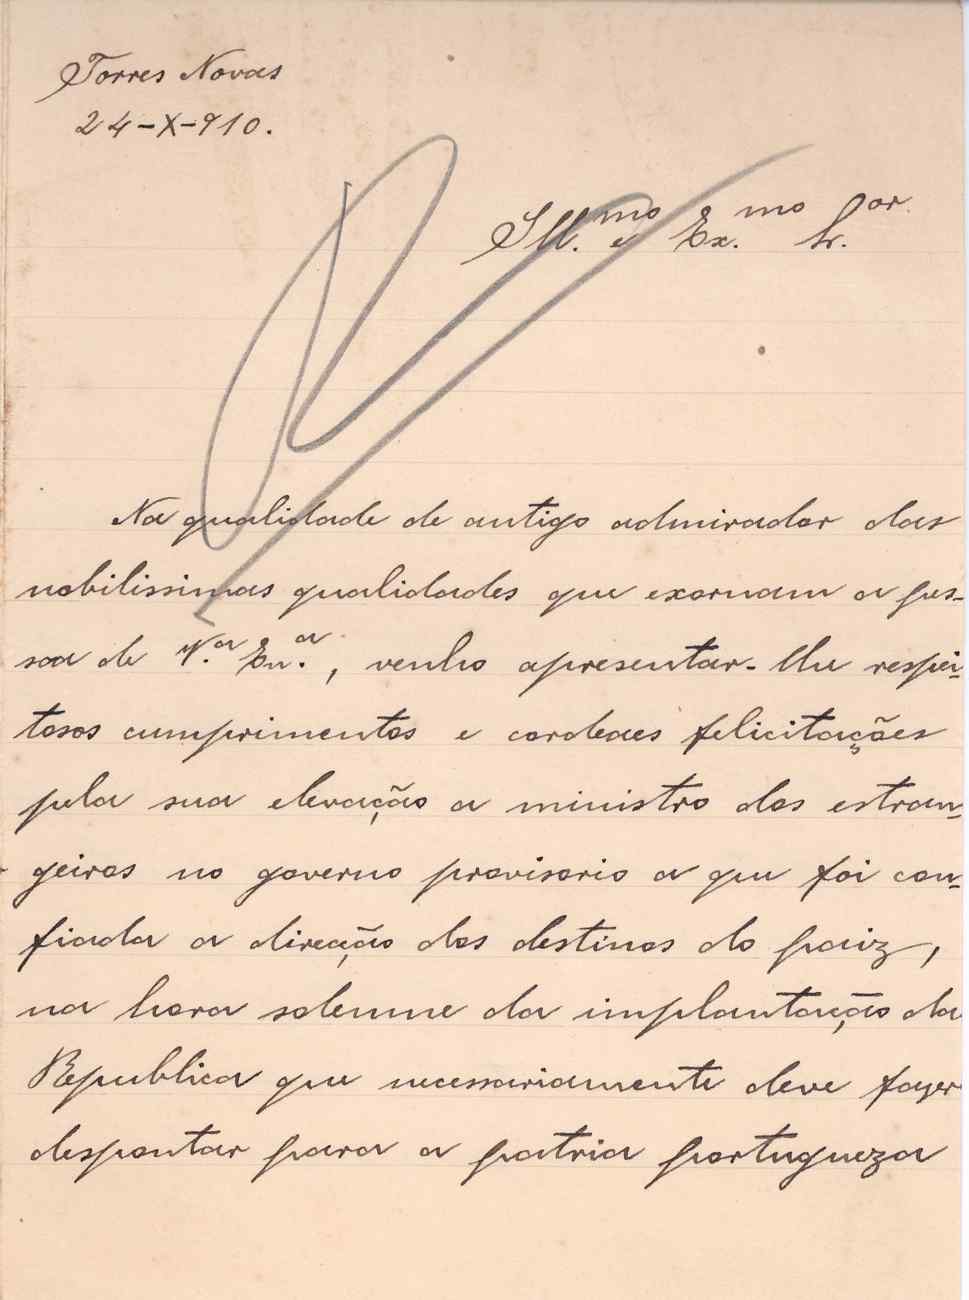 Torres Novas
24-X-910.
Ill.mo e Ex.mo Sr.
Na qualidade de antigo admirador das
nobilissimas qualidades que exornam a pes-
soa de V.ª Ex.ª, venho apresentar-lhe respei-
tosos cumprimentos e cordeaes felicitações
pela sua elevação a ministro dos estran-
geiros no governo provisorio a que foi con-
fiada a direcção dos destinos do paiz,
na hora solemne da implantação da
Republica que necessariamente deve fazer
despontar para a patria portugueza